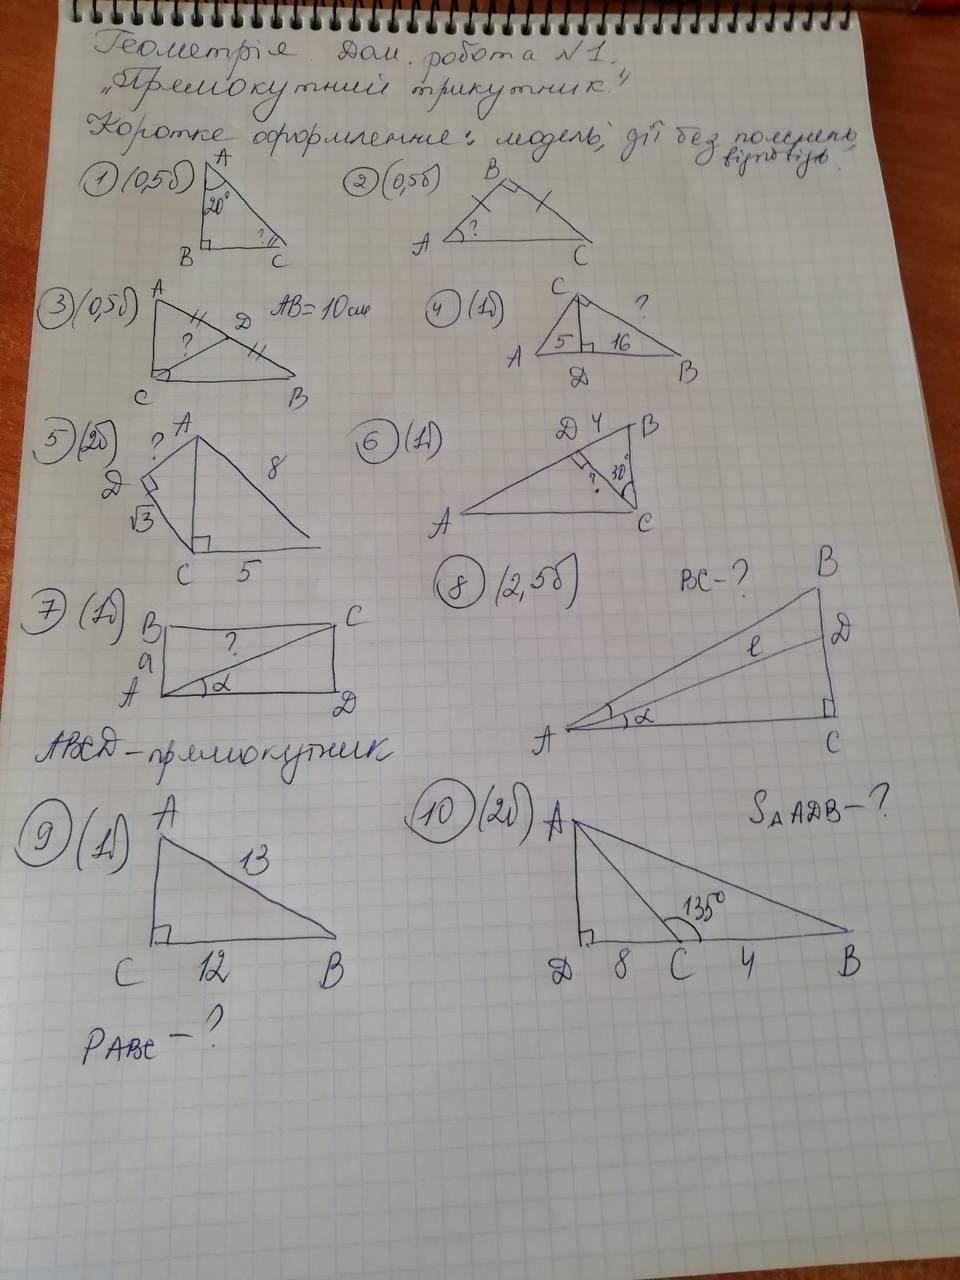 Геометрія Дом. робота №1.
„Прямокутний трикутник"
Коротке оформлення: модель, дії без пояснень,
відповідь.
1 (0,5б) A 20° B ? C
2 (0,5б) B A ? C
3 (0,5б) A AB=10см D ? C B
4 (1б) C ? A 5 16 D B
5 (2б) ? A 8 D √3 C 5
6 (1б) D 4 B 30° ? A C
7 (1б) B C ? a A α D
ABCD – прямокутник
8 (2,5б) BC-? B D l A α C
9 (1б) A 13 C 12 B
PABC – ?
10 (2б) A S△ADB – ? 135° D 8 C 4 B